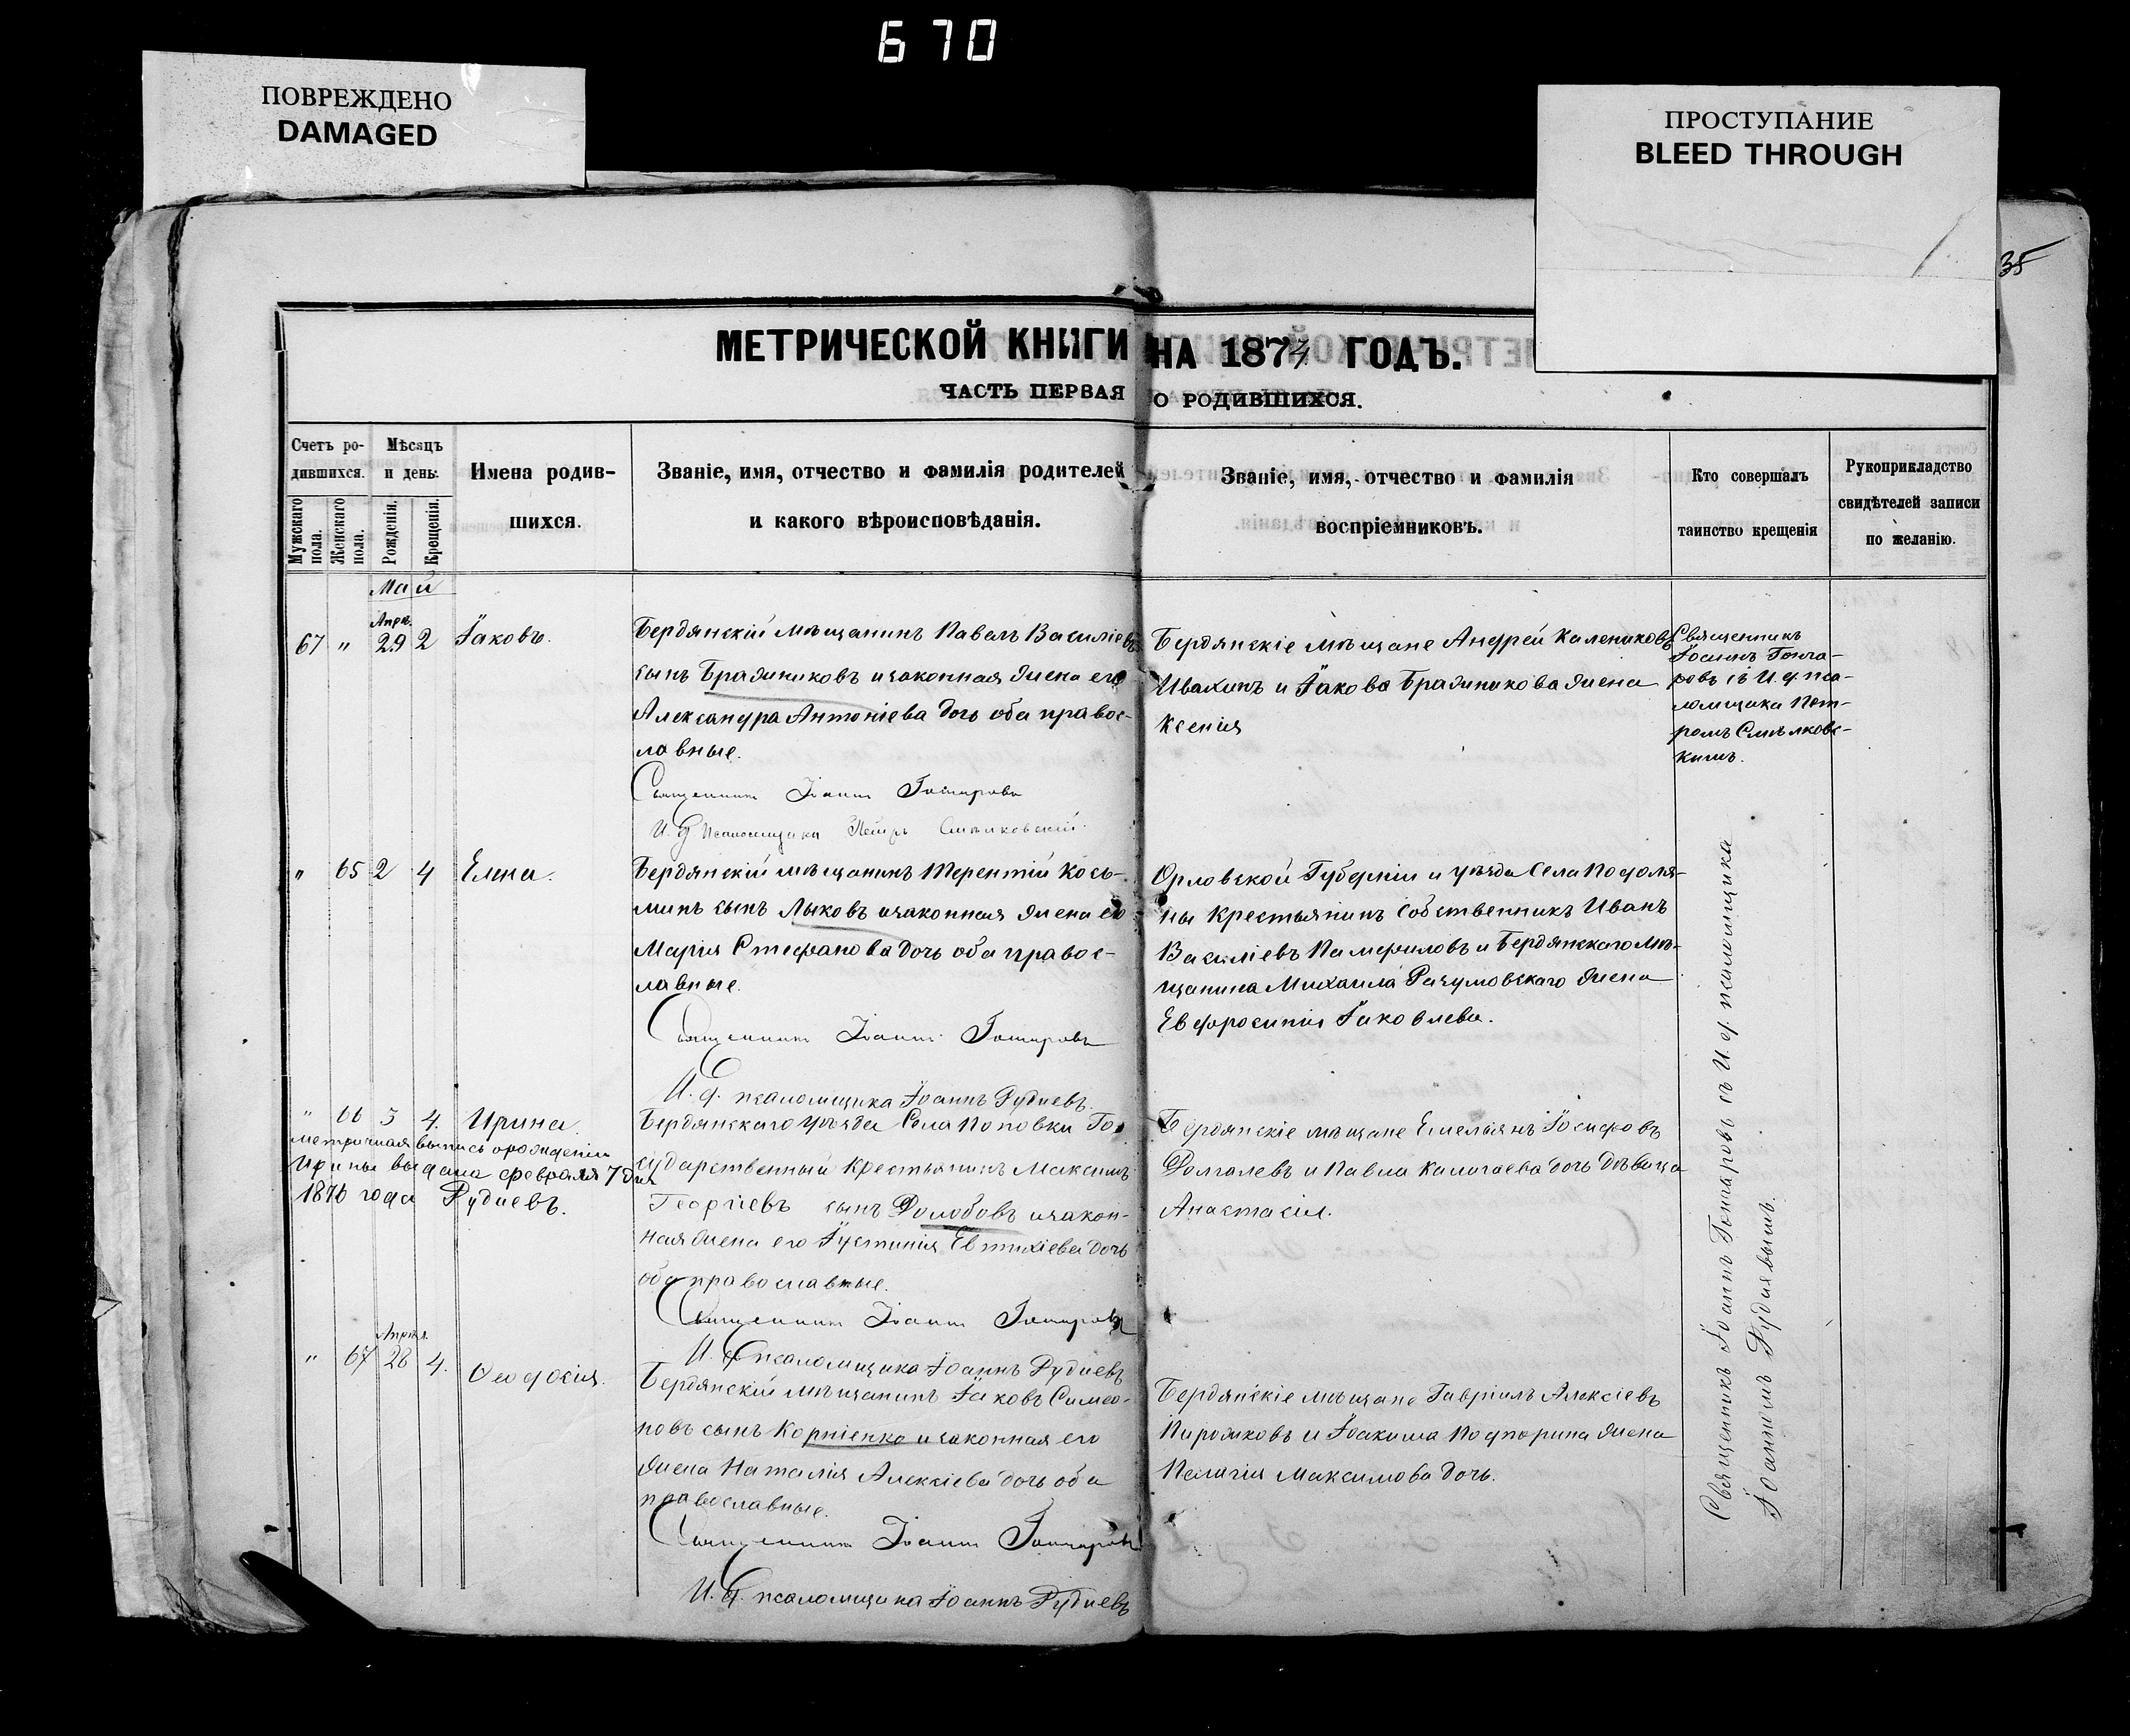 670
ПОВРЕЖДЕНО
DAMAGED
ПРОСТУПАНИЕ
BLEED THROUGH
35
МЕТРИЧЕСКОЙ КНИГИ НА 1874 ГОДЪ.
ЧАСТЬ ПЕРВАЯ О РОДИВШИХСЯ.
Счетъ ро-
дившихся.
Мужскаго пола.
Женскаго пола.
Мѣсяцъ
и день.
Рожденія.
Крещенія.
Имена родив-
шихся.
Званіе, имя, отчество и фамилія родителей
и какого вѣроисповѣданія.
Званіе, имя, отчество и фамилія
воспріемниковъ.
Кто совершалъ
таинство крещенія
Рукоприкладство
свидѣтелей записи
по желанію.
Май
Апрл.
67 " 29 2 Іаковъ.
Бердянскій мѣщанинъ Павелъ Василіевъ
сынъ Бражниковъ и законная жена его
Александра Антоніева дочь оба правос-
лавные.
Священникъ Іоаннъ Гончаровъ
И. ф. псаломщика Петръ Смѣлковскій.
Бердянскіе мѣщане Андрей Калениковъ
Ивахинъ и Іакова Бражникова жена
Ксенія
Священникъ
Іоаннъ Гонча-
ровъ съ И. ф. пса-
ломщика Пет-
ромъ Смѣлковс-
кимъ.
" 65 2 4 Елена.
Бердянскій мѣщанинъ Терентій Кось-
минъ сынъ Лыковъ и законная жена его
Марія Стефанова дочь оба правос-
лавные.
Священникъ Іоаннъ Гончаровъ
И. ф. псаломщика Іоаннъ Рудневъ.
Орловской Губерніи и уѣзда Села Подоля-
ны Крестьянинъ Собственникъ Иванъ
Василіевъ Памфиловъ и Бердянскаго Мѣ-
щанина Михаила Разумовскаго жена
Евфросинія Іаковлева.
" 66 3 4. Ирина
Метричная выпись о рожденіи
Ирины выдана февраля 7 дня
1876 года Рудневъ.
Бердянскаго уѣзда Села Поповки Го-
сударственный крестьянинъ Максимъ
Георгіевъ сынъ Долобовъ и закон-
ная жена его Іустинія Евтихіева дочь
оба православные.
Священникъ Іоаннъ Гончаровъ
И. ф. псаломщика Іоаннъ Рудневъ
Бердянскіе мѣщане Емельянъ Іосифовъ
Долгалевъ и Павла Калачаева дочь дѣвица
Анастасія.
Апрѣл.
" 67 28 4. Феодосія.
Бердянскій мѣщанинъ Іаковъ Симео-
новъ сынъ Корніенко и законная его
жена Наталія Алексіева дочь оба
православные.
Священникъ Іоаннъ Гончаровъ
И. ф. псаломщика Іоаннъ Рудневъ
Бердянскіе мѣщане Гавріилъ Алексіевъ
Пирожковъ и Іоакима Подпорина жена
Пелагія Максимова дочь.
Священникъ Іоаннъ Гончаровъ съ И. ф. псаломщика
Іоанномъ Рудневымъ.